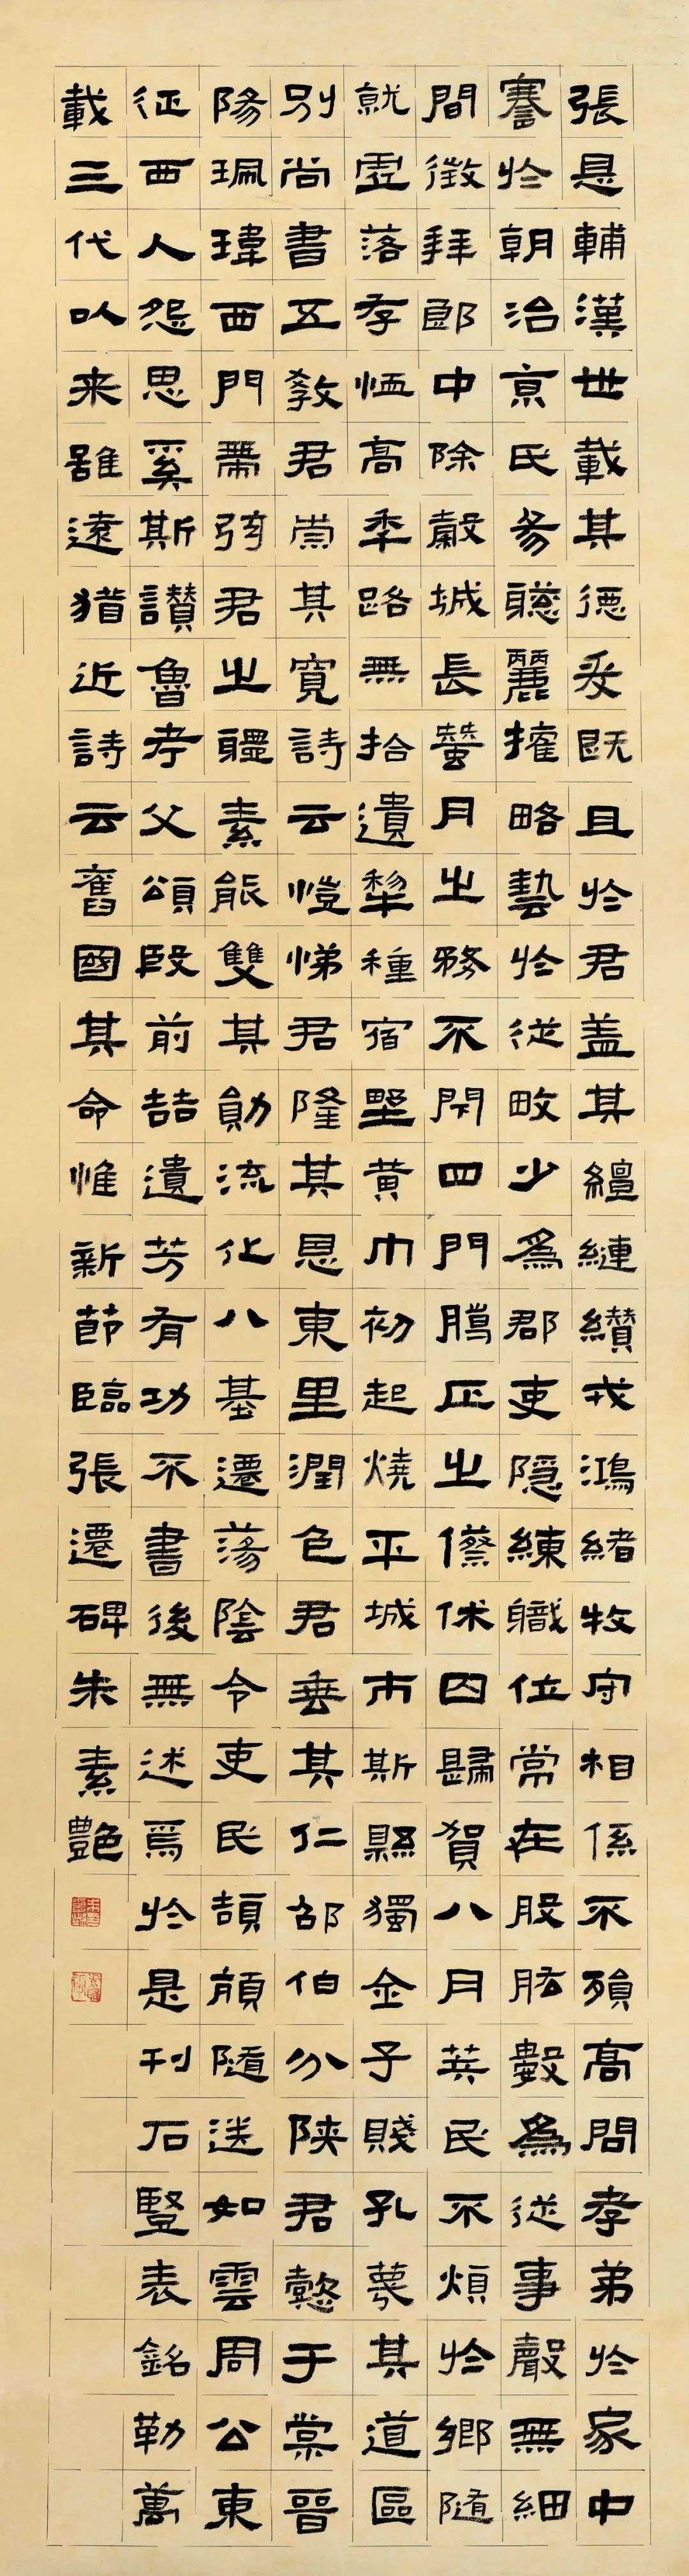 張是輔漢世載其德爰既且於君盖其繵縺纘戎鴻緒牧守相係不殞高問孝弟於家中
謇於朝治京氏易聰麗權略藝於從畋少為郡吏隱練職位常在股肱數為從事聲無細
間徵拜郎中除穀城長蠶月之務不閉四門臘正之僚休囚歸賀八月筭民不煩於鄉隨
就虛落存恤高年路無拾遺犁種宿野黃巾初起燒平城市斯縣獨全子賤孔蔑其道區
別尚書五教君崇其寬詩云愷悌君隆其恩東里潤色君垂其仁邵伯分陝君懿于棠晉
陽珮瑋西門帶弦君之體素能雙其勛流化八基遷蕩陰令吏民頡頏隨送如雲周公東
征西人怨思奚斯讚魯考父頌殷前喆遺芳有功不書後無述焉於是刊石豎表銘勒萬
載三代以来雖遠猶近詩云舊國其命惟新節臨張遷碑朱素艷